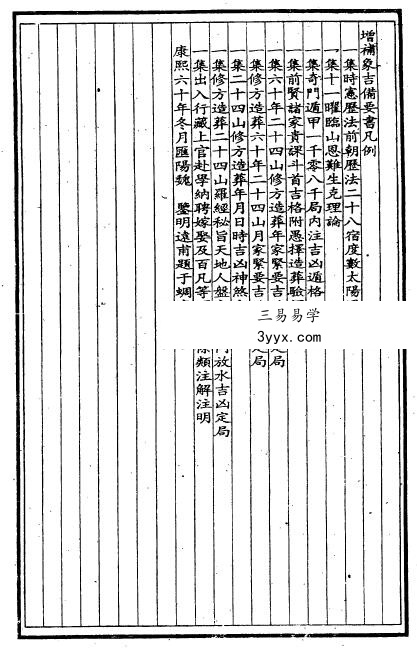 增補象吉備要書凡例
一集時憲歷法前朝歷法二十八宿度數太陽
一集十一曜臨山恩難生克理論
一集奇門遁甲一千零八千局內注吉凶遁格
一集前賢諸家貴課斗首吉格附愚擇造葬驗
一集六十年二十四山修方造葬年家緊要吉
定局
一集修方造葬六十年二十四山月家緊要吉
局
一集二十四山修方造葬年月日時吉凶神煞
一集修方造葬二十四山羅經秘旨天地人盤
門放水吉凶定局
一集出入行藏上官赴學納聘嫁娶及百凡等
類注解注明
康熙六十年冬月匯陽魏 鑒明遠甫題于蜩
三易易学
3yyx.com